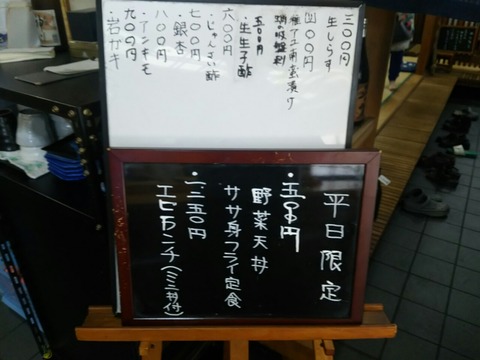 三〇〇円
生しらす
四〇〇円
五〇〇円
生生子酢
六〇〇円
・じゅんさい酢
七〇〇円
・銀杏
八〇〇円
・アンキモ
九〇〇円
・岩ガキ
平日限定
・五〇〇円
野菜天丼
ササ身フライ定食
・一二五〇円
エビランチ(ミニ丼付)